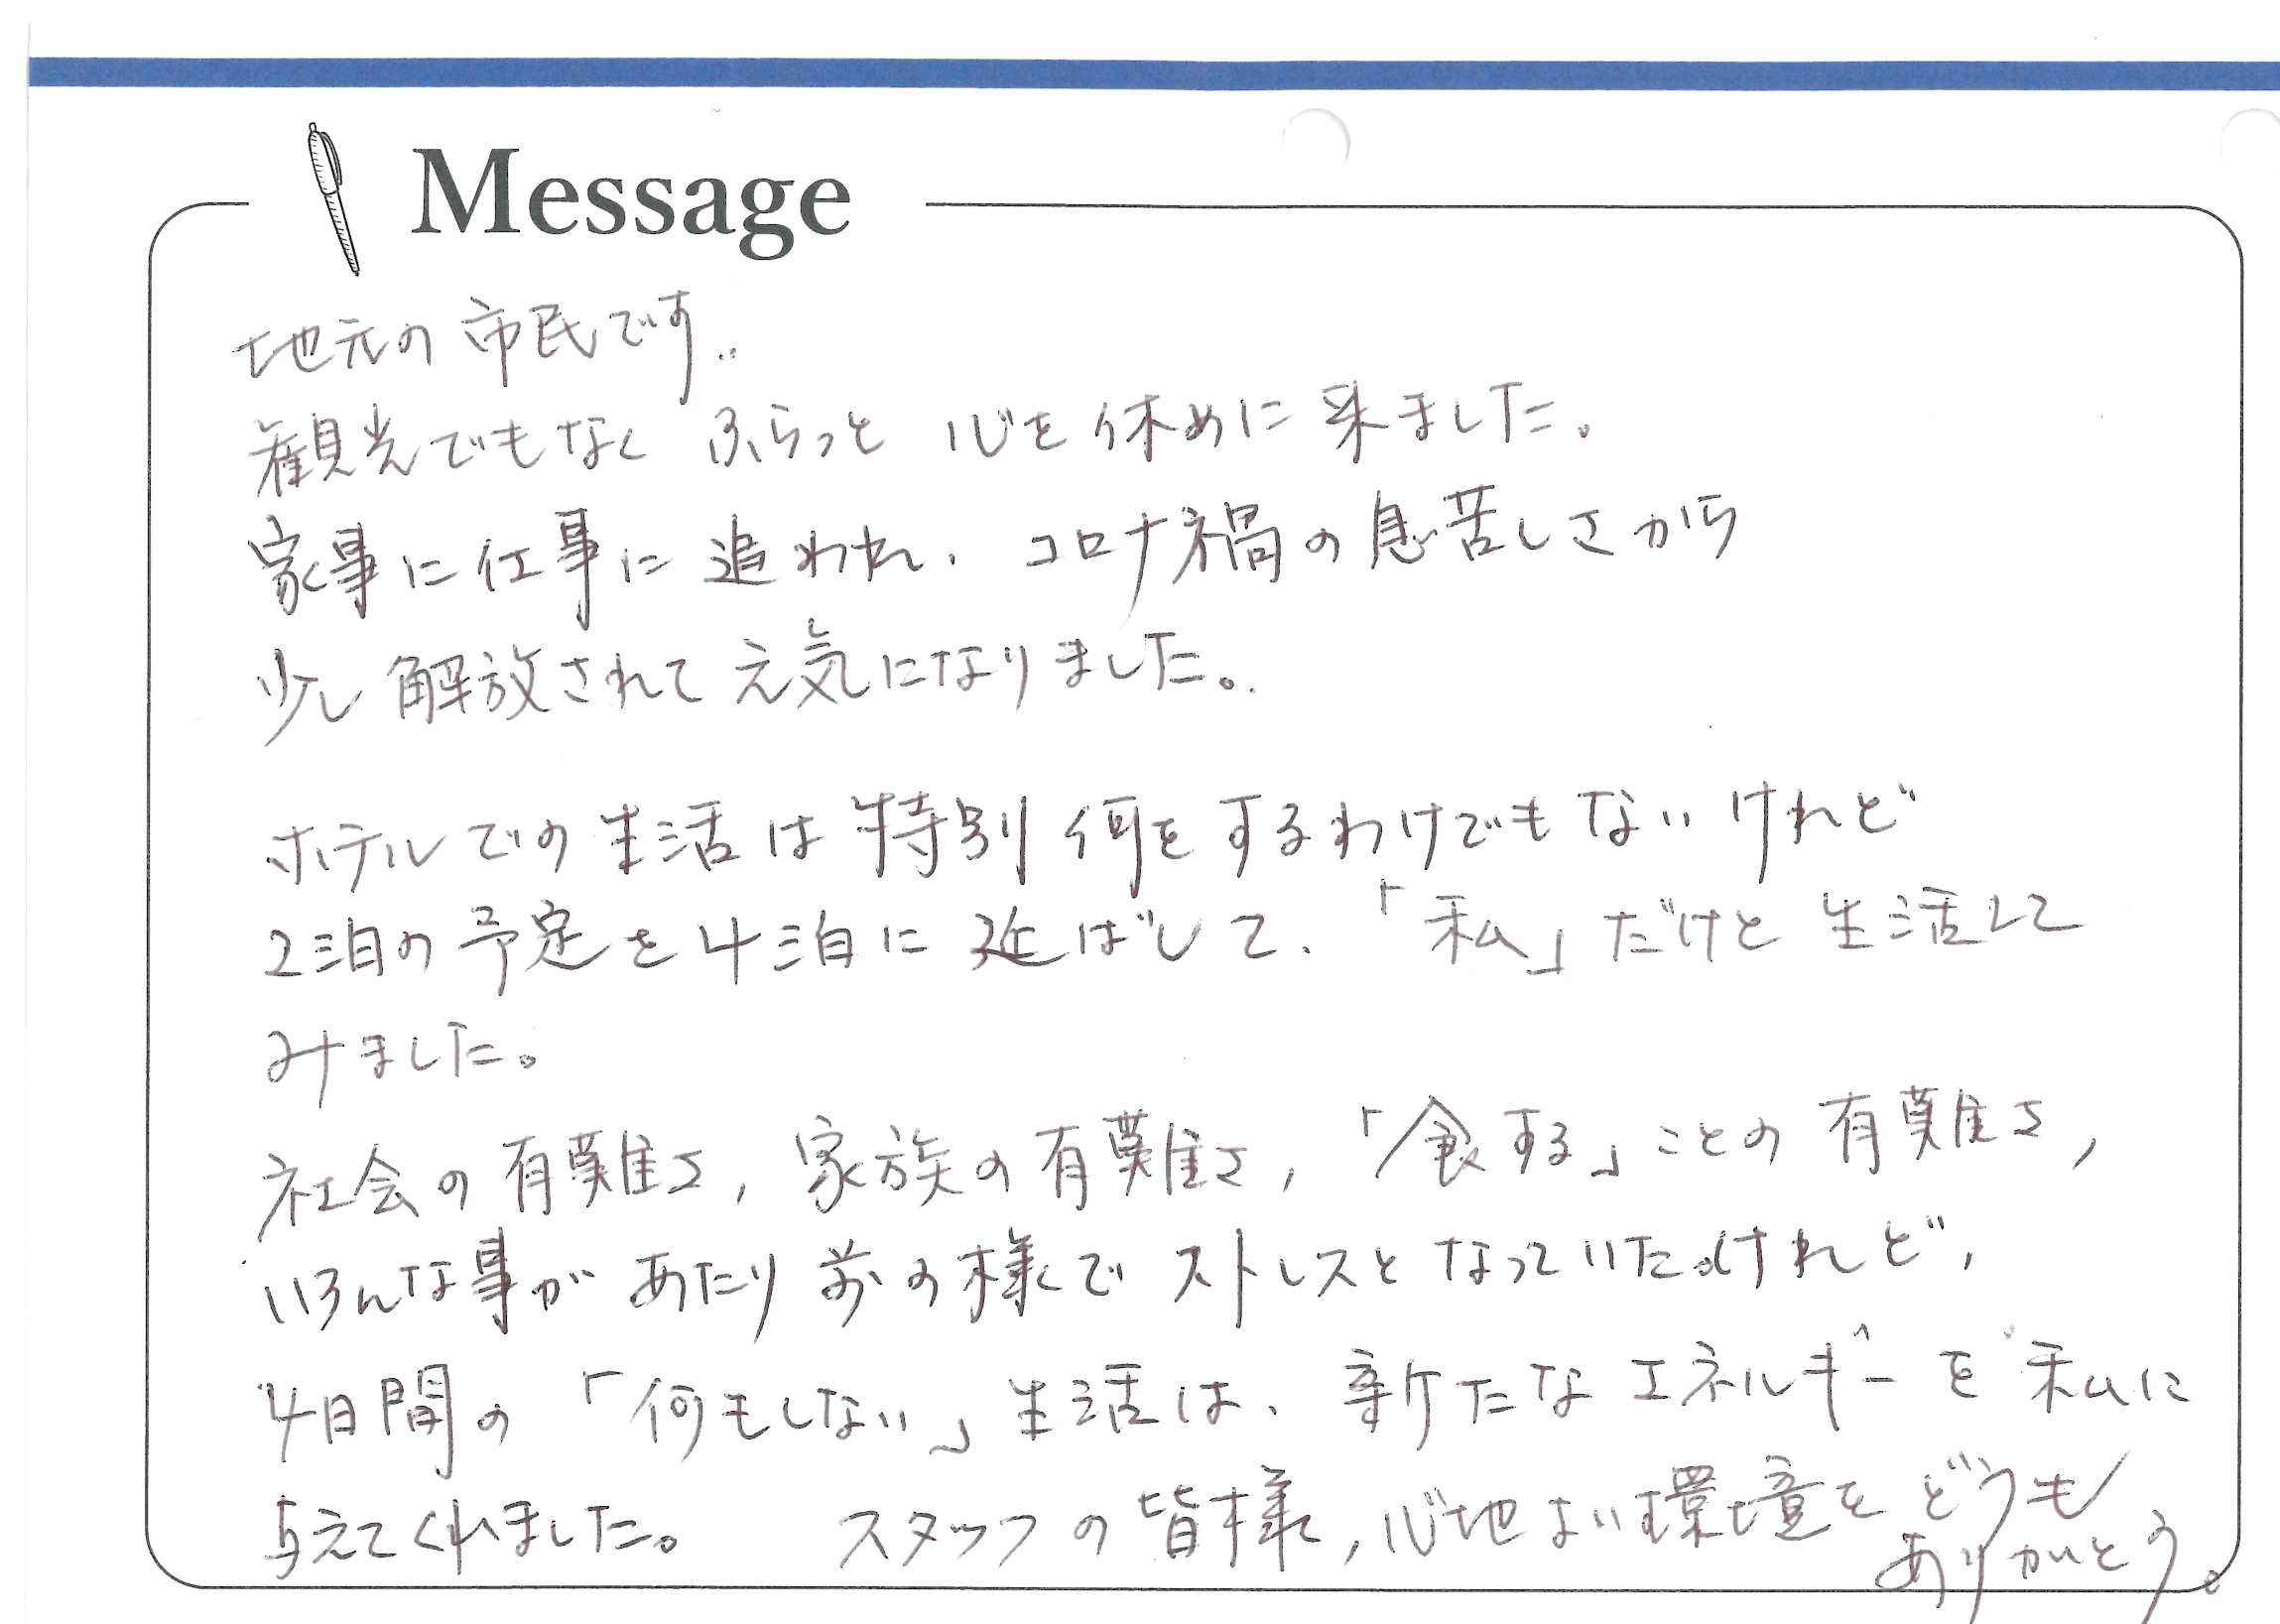 Message
地元の市民です。
観光でもなく ふらっと 心を休めに来ました。
家事に仕事に追われ、コロナ禍の息苦しさから
少し解放されて元気になりました。
ホテルでの生活は特別何をするわけでもないけれど
2泊の予定を4泊に延ばして、「私」だけと生活して
みました。
社会の有難さ,家族の有難さ,「食する」ことの有難さ,
いろんな事があたり前の様でストレスとなっていたけれど,
4日間の「何もしない」生活は、新たなエネルギーを私に
与えてくれました。 スタッフの皆様,心地よい環境をどうも
ありがとう。